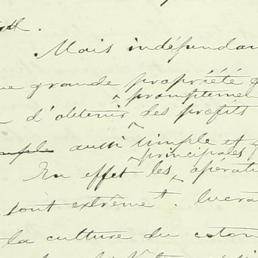 Mais indépendam
grande propriété q
promptement
d'obtenir des profits
aussi simple et q
principales
En effet les opérati
sont extrêmt. lucra
la culture du coton